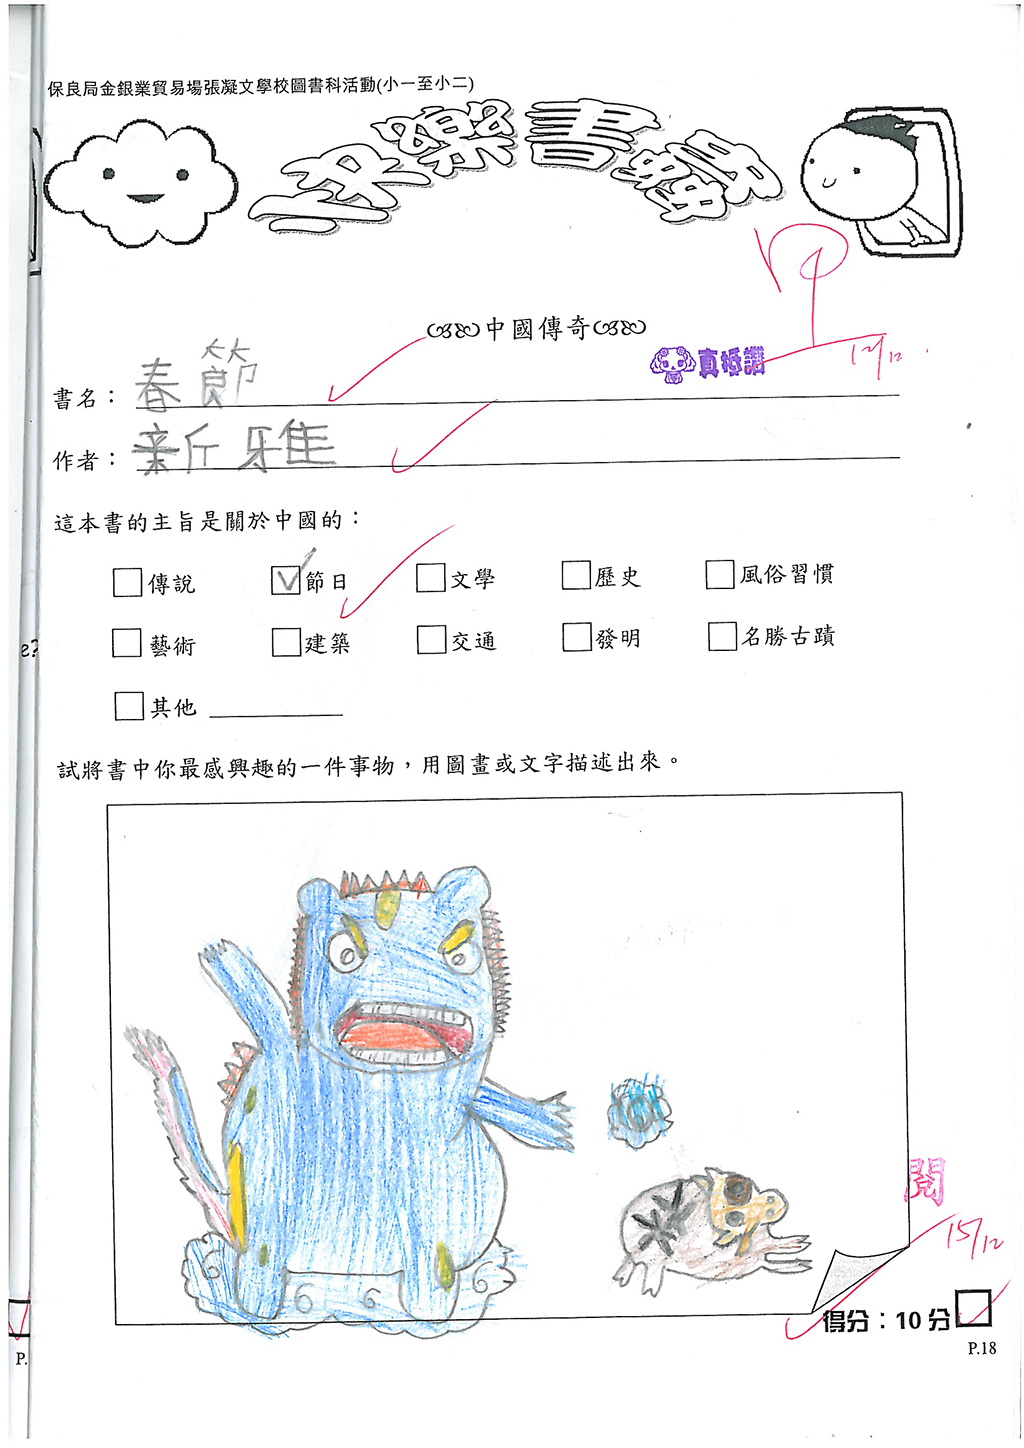 保良局金銀業貿易場張凝文學校圖書科活動(小一至小二)
書蟲
甲
中國傳奇
真棒講
12/12
書名：春節
作者：新雅
這本書的主旨是關於中國的：
傳說 節日 文學 歷史 風俗習慣
藝術 建築 交通 發明 名勝古蹟
其他
e?
試將書中你最感興趣的一件事物，用圖畫或文字描述出來。
閱
15/12
得分：10分
P.
P.18